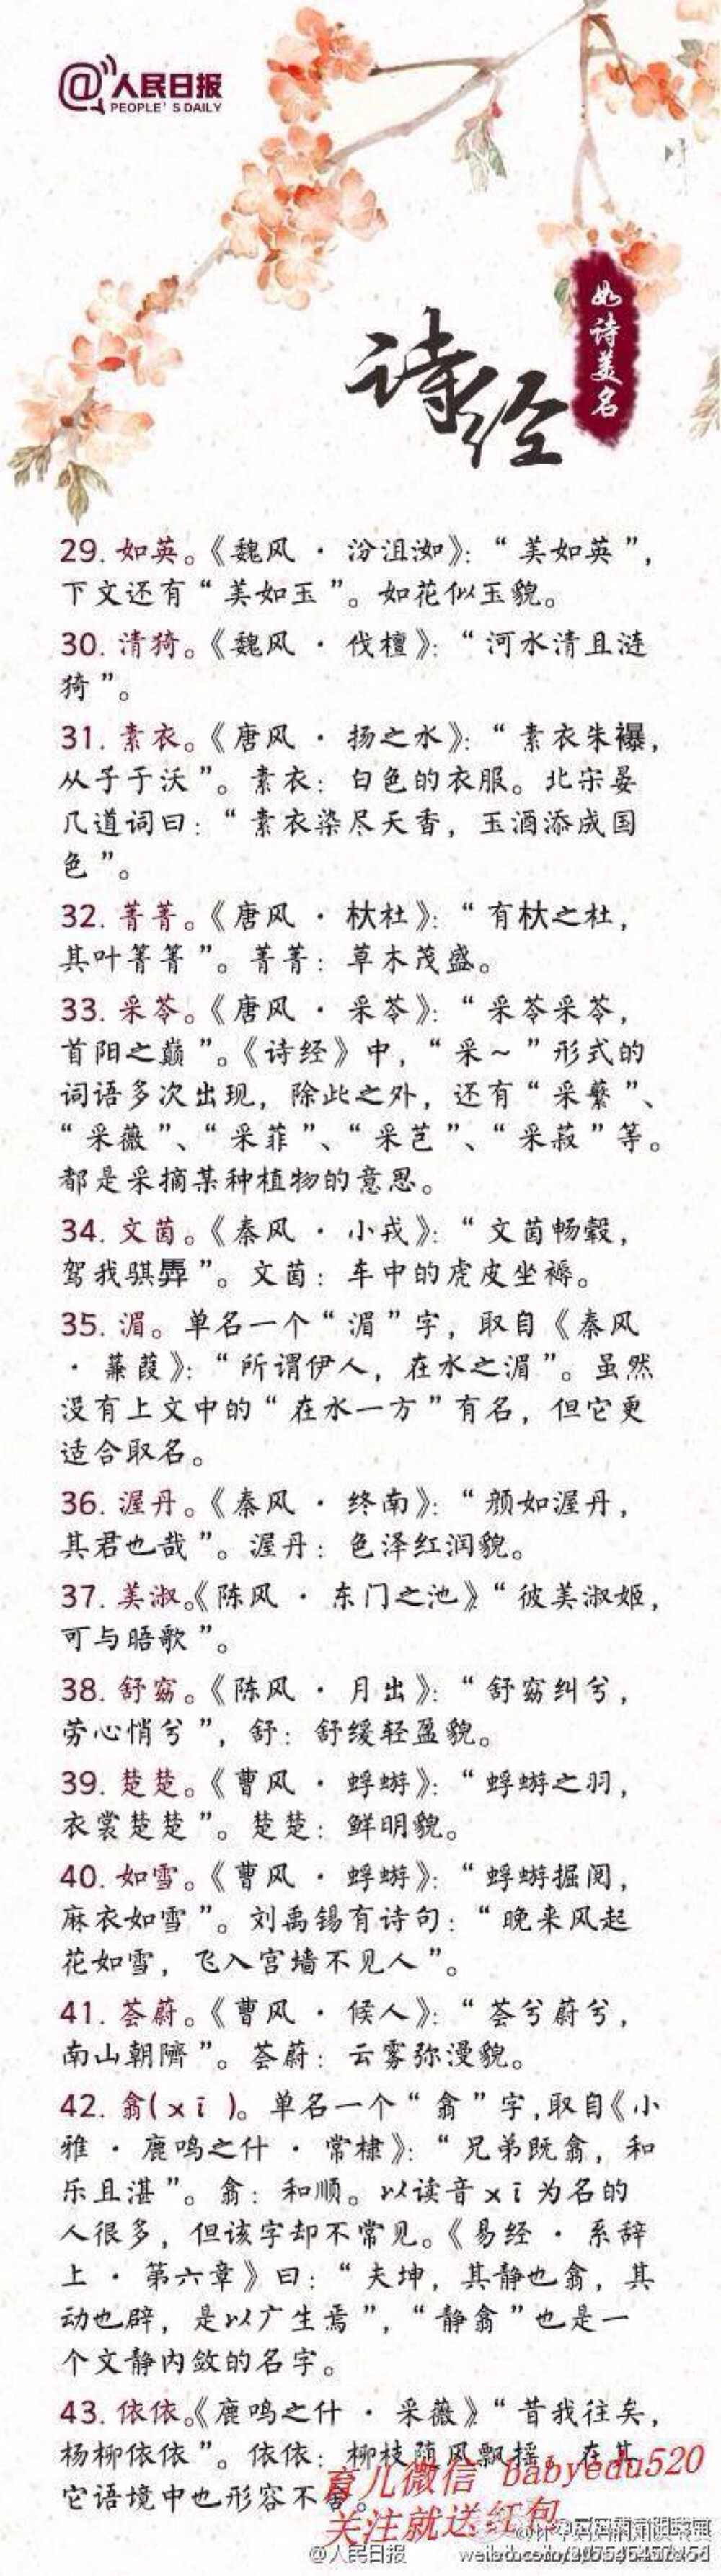 @人民日报
PEOPLE'S DAILY
如诗美名
诗经
29. 如英。《魏风 · 汾沮洳》：“美如英”，
下文还有“美如玉”。如花似玉貌。
30. 清猗。《魏风 · 伐檀》：“河水清且涟
猗”。
31. 素衣。《唐风 · 扬之水》：“素衣朱襮，
从子于沃”。素衣：白色的衣服。北宋晏
几道词曰：“素衣染尽天香，玉酒添成国
色”。
32. 菁菁。《唐风 · 杕杜》：“有杕之杜，
其叶菁菁”。菁菁：草木茂盛。
33. 采苓。《唐风 · 采苓》：“采苓采苓，
首阳之巅”。《诗经》中，“采～”形式的
词语多次出现，除此之外，还有“采蘩”、
“采薇”、“采菲”、“采芑”、“采菽”等。
都是采摘某种植物的意思。
34. 文茵。《秦风 · 小戎》：“文茵畅毂，
驾我骐馵”。文茵：车中的虎皮坐褥。
35. 湄。单名一个“湄”字，取自《秦风
· 蒹葭》：“所谓伊人，在水之湄”。虽然
没有上文中的“在水一方”有名，但它更
适合取名。
36. 渥丹。《秦风 · 终南》：“颜如渥丹，
其君也哉”。渥丹：色泽红润貌。
37. 美淑。《陈风 · 东门之池》“彼美淑姬，
可与晤歌”。
38. 舒窈。《陈风 · 月出》：“舒窈纠兮，
劳心悄兮”，舒：舒缓轻盈貌。
39. 楚楚。《曹风 · 蜉蝣》：“蜉蝣之羽，
衣裳楚楚”。楚楚：鲜明貌。
40. 如雪。《曹风 · 蜉蝣》：“蜉蝣掘阅，
麻衣如雪”。刘禹锡有诗句：“晚来风起
花如雪，飞入宫墙不见人”。
41. 荟蔚。《曹风 · 候人》：“荟兮蔚兮，
南山朝隮”。荟蔚：云雾弥漫貌。
42. 翕(xī)。单名一个“翕”字，取自《小
雅 · 鹿鸣之什 · 常棣》：“兄弟既翕，和
乐且湛”。翕：和顺。以读音xī为名的
人很多，但该字却不常见。《易经 · 系辞
上 · 第六章》曰：“夫坤，其静也翕，其
动也辟，是以广生焉”，“静翕”也是一
个文静内敛的名字。
43. 依依。《鹿鸣之什 · 采薇》“昔我往矣，
杨柳依依”。依依：柳枝随风飘摇，在其
它语境中也形容不舍。
育儿微信 babyedu520
关注就送红包
@人民日报